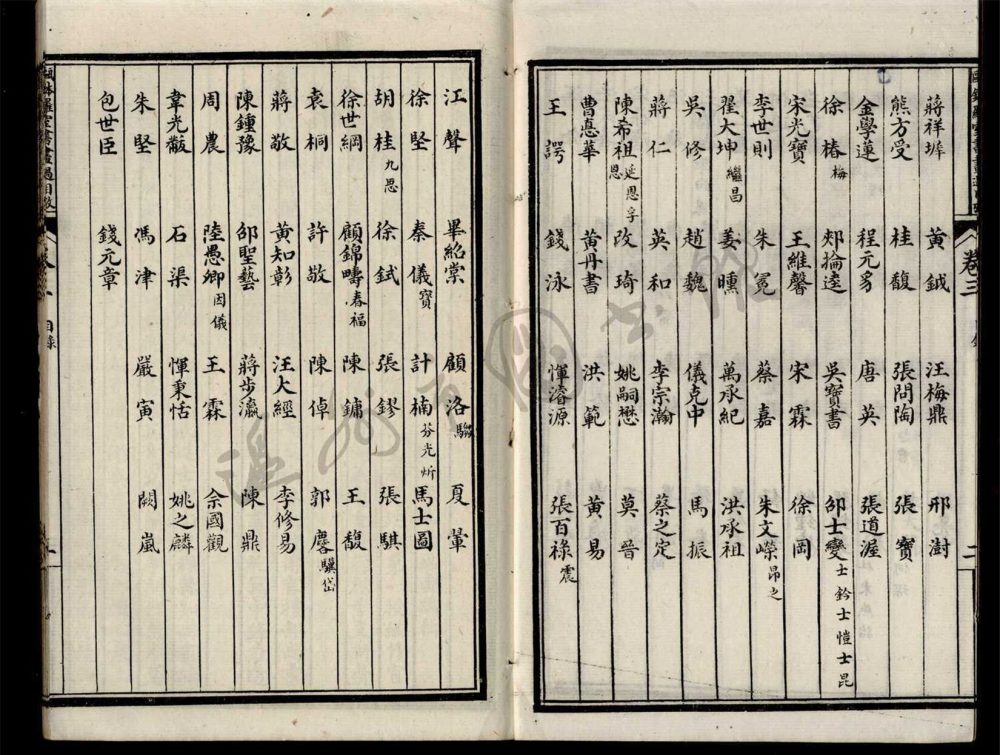 卷三
二
蔣祥墀 黃鉞 汪梅鼎 邢澍
熊方受 桂馥 張問陶 張寶
金學蓮 程元 唐英 張道渥
徐椿梅 郟掄逵 吳寶書 邵士燮士鈐士愷士昆
宋光寶 王維馨 宋霖 徐岡
李世則 朱冕 蔡嘉 朱文嶸昂之
翟大坤繼昌 姜曛 萬承紀 洪承祖
吳修 趙魏 儀克中 馬振
蔣仁 英和 李宗瀚 蔡之定
陳希祖延恩孚恩 改琦 姚嗣懋 莫晉
曹惪華 黃丹書 洪範 黃易
王諤 錢泳 惲濬源 張百祿震
江聲 畢紹棠 顧洛騶 夏翬
徐堅 秦儀寶 計楠芬光炘 馬士圖
胡桂九思 徐鉽 張鏐 張騏
徐世綱 顧錦疇春福 陳鏞 王馥
袁桐 許敬 陳倬 郭麐驥岱
蔣敬 黃知彰 汪大經 李修易
陳鍾豫 邵聖藝 蔣步瀛 陳鼎
周農 陸愚卿因儀 王霖 佘國觀
韋光黻 石渠 惲秉恬 姚之麟
朱堅 馮津 嚴寅 闕嵐
包世臣 錢元章
書畫過目攷
目錄